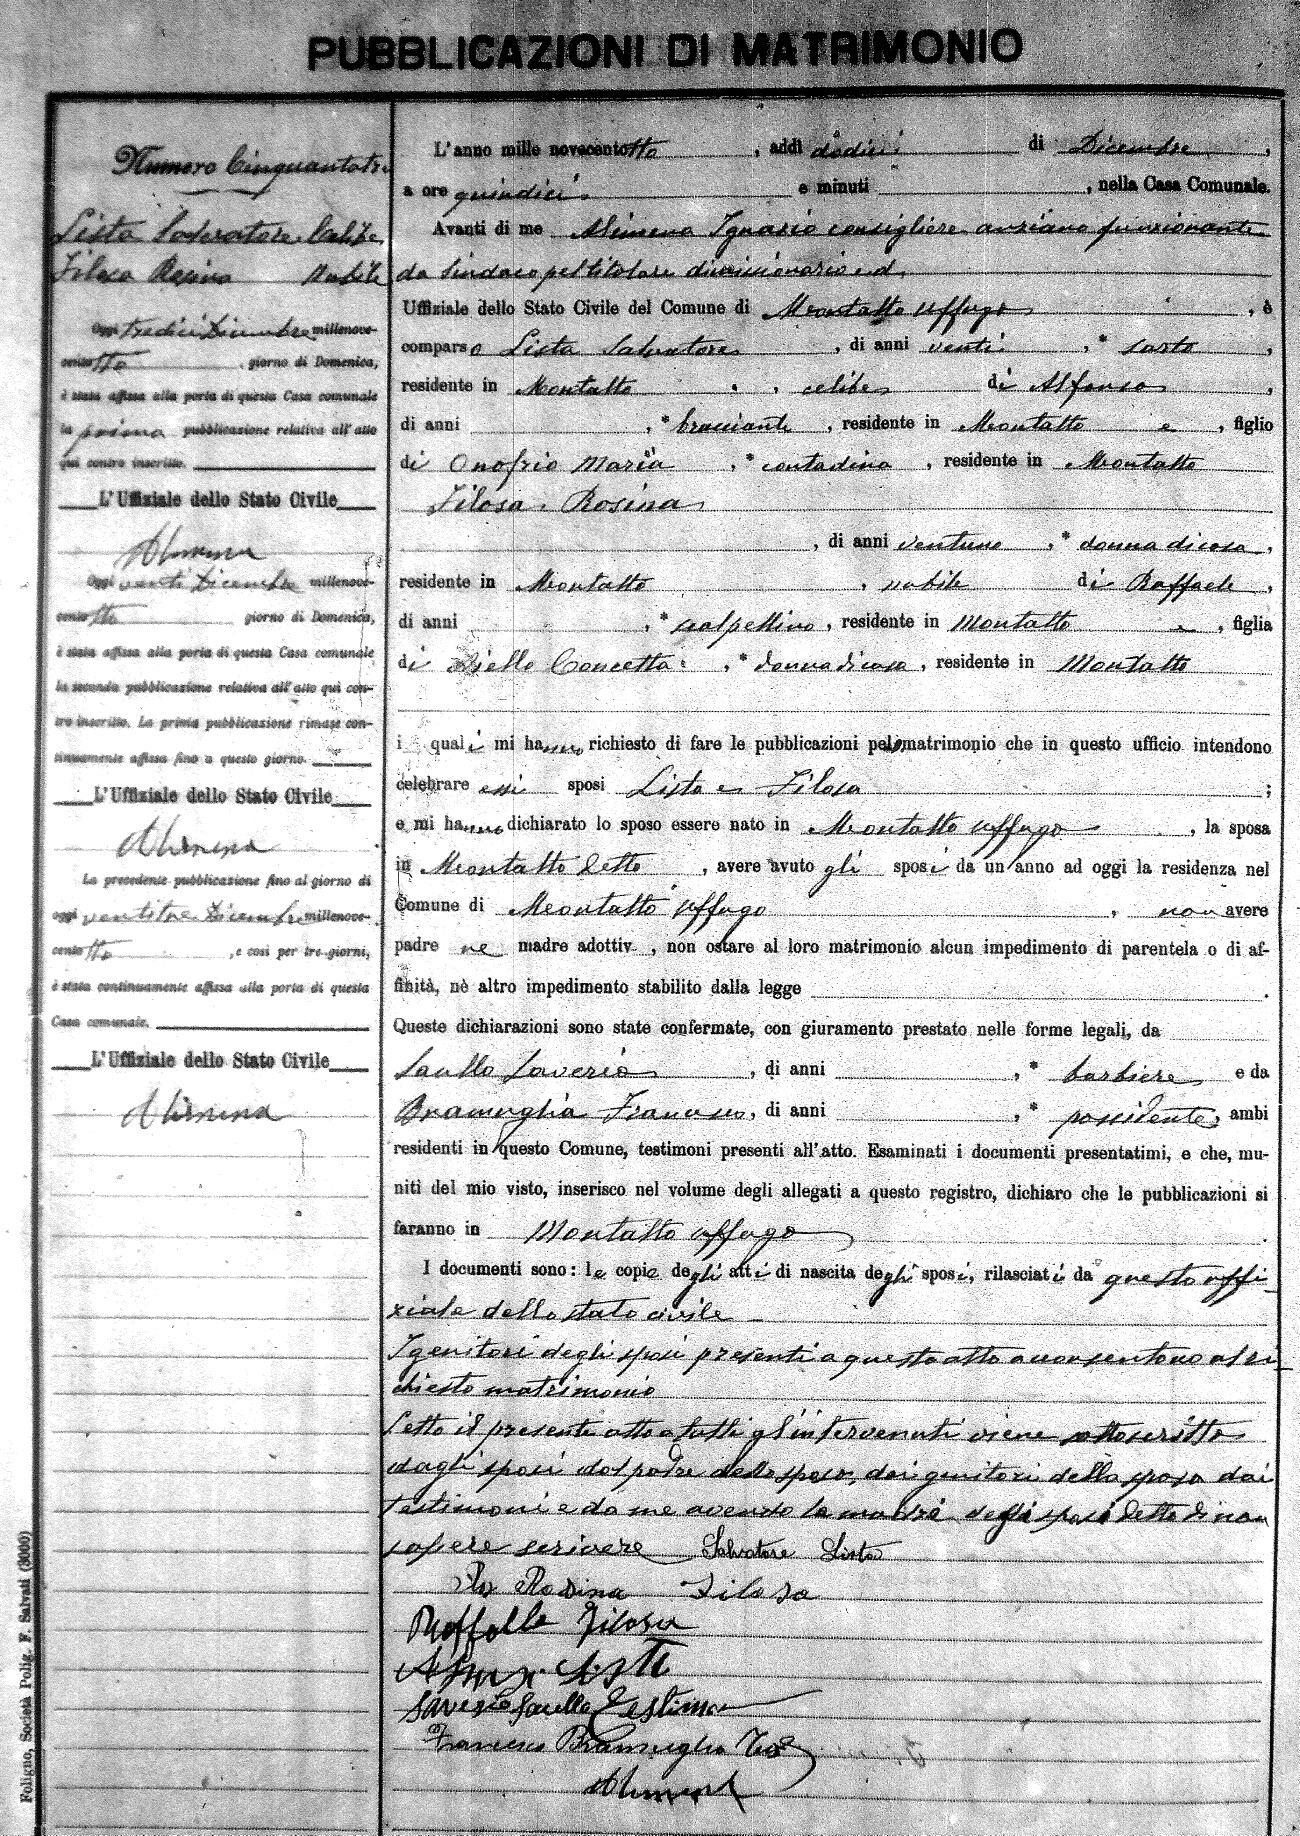 PUBBLICAZIONI DI MATRIMONIO
Numero Cinquantatre
Lista Salvatore Celibe
Filosa Rosina Nubile
Oggi tredici Dicembre millenove-
cento otto, giorno di Domenica,
è stata affissa alla porta di questa Casa comunale
la prima pubblicazione relativa all'atto
qui contro inscritto.
L'Uffiziale dello Stato Civile
Alimena
Oggi venti Dicembre millenove-
cento otto giorno di Domenica,
è stata affissa alla porta di questa Casa comunale
la seconda pubblicazione relativa all'atto quì con-
tro inscritto. La prima pubblicazione rimase con-
tinuamente affissa fino a questo giorno.
L'Uffiziale dello Stato Civile
Alimena
La precedente pubblicazione fino al giorno di
oggi ventitre Dicembre millenove-
cento otto, e così per tre giorni,
è stata continuamente affissa alla porta di questa
Casa comunale.
L'Uffiziale dello Stato Civile
Alimena
L'anno mille novecentotto, addì dodici di Dicembre,
a ore quindici e minuti , nella Casa Comunale.
Avanti di me Alimena Ignazio consigliere anziano funzionante
da Sindaco pel titolare dimissionario e d.
Uffiziale dello Stato Civile del Comune di Montalto Uffugo, è
comparso Lista Salvatore, di anni venti, * sarto,
residente in Montalto, celibe di Alfonso,
di anni , * bracciante, residente in Montalto e, figlio
di Onofrio Maria, * contadina, residente in Montalto
Filosa Rosina
, di anni ventuno, * donna di casa,
residente in Montalto, nubile di Raffaele,
di anni , * scalpellino, residente in Montalto e, figlia
di Aiello Concetta, * donna di casa, residente in Montalto
i quali mi hanno richiesto di fare le pubblicazioni pel matrimonio che in questo ufficio intendono
celebrare essi sposi Lista e Filosa;
e mi hanno dichiarato lo sposo essere nato in Montalto Uffugo, la sposa
in Montalto detto, avere avuto gli sposi da un anno ad oggi la residenza nel
Comune di Montalto Uffugo, non avere
padre ne madre adottiv , non ostare al loro matrimonio alcun impedimento di parentela o di af-
finità, nè altro impedimento stabilito dalla legge .
Queste dichiarazioni sono state confermate, con giuramento prestato nelle forme legali, da
Saullo Saverio, di anni , * barbiere e da
Bramuglia Francesco, di anni , * possidente, ambi
residenti in questo Comune, testimoni presenti all'atto. Esaminati i documenti presentatimi, e che, mu-
niti del mio visto, inserisco nel volume degli allegati a questo registro, dichiaro che le pubblicazioni si
faranno in Montalto Uffugo.
I documenti sono: le copie degli atti di nascita degli sposi, rilasciati da questo uffi-
ziale dello stato civile
I genitori degli sposi presenti a questo atto acconsentono al ri-
chiesto matrimonio
Letto il presente atto a tutti gl'intervenuti viene sottoscritto
dagli sposi dal padre dello sposo, dai genitori della sposa dai
testimoni e da me avendo la madre degli sposi detto di non
sapere scrivere Salvatore Lista
Rosina Filosa
Raffaele Filosa
Alfonzo Lista
Saverio Saullo Testimone
Francesco Bramuglia Tes
Alimena
Foligno, Società Polig. F. Salvati (3000)